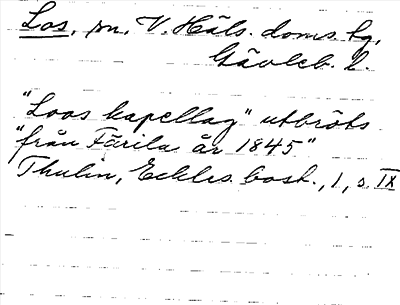 Los, sn, V. Häls. doms. tg,
Gävleb. l.
"Loos kapellag" utbröts
"från Färila år 1845"
Thulin, Eckles. bost., 1, s. IX